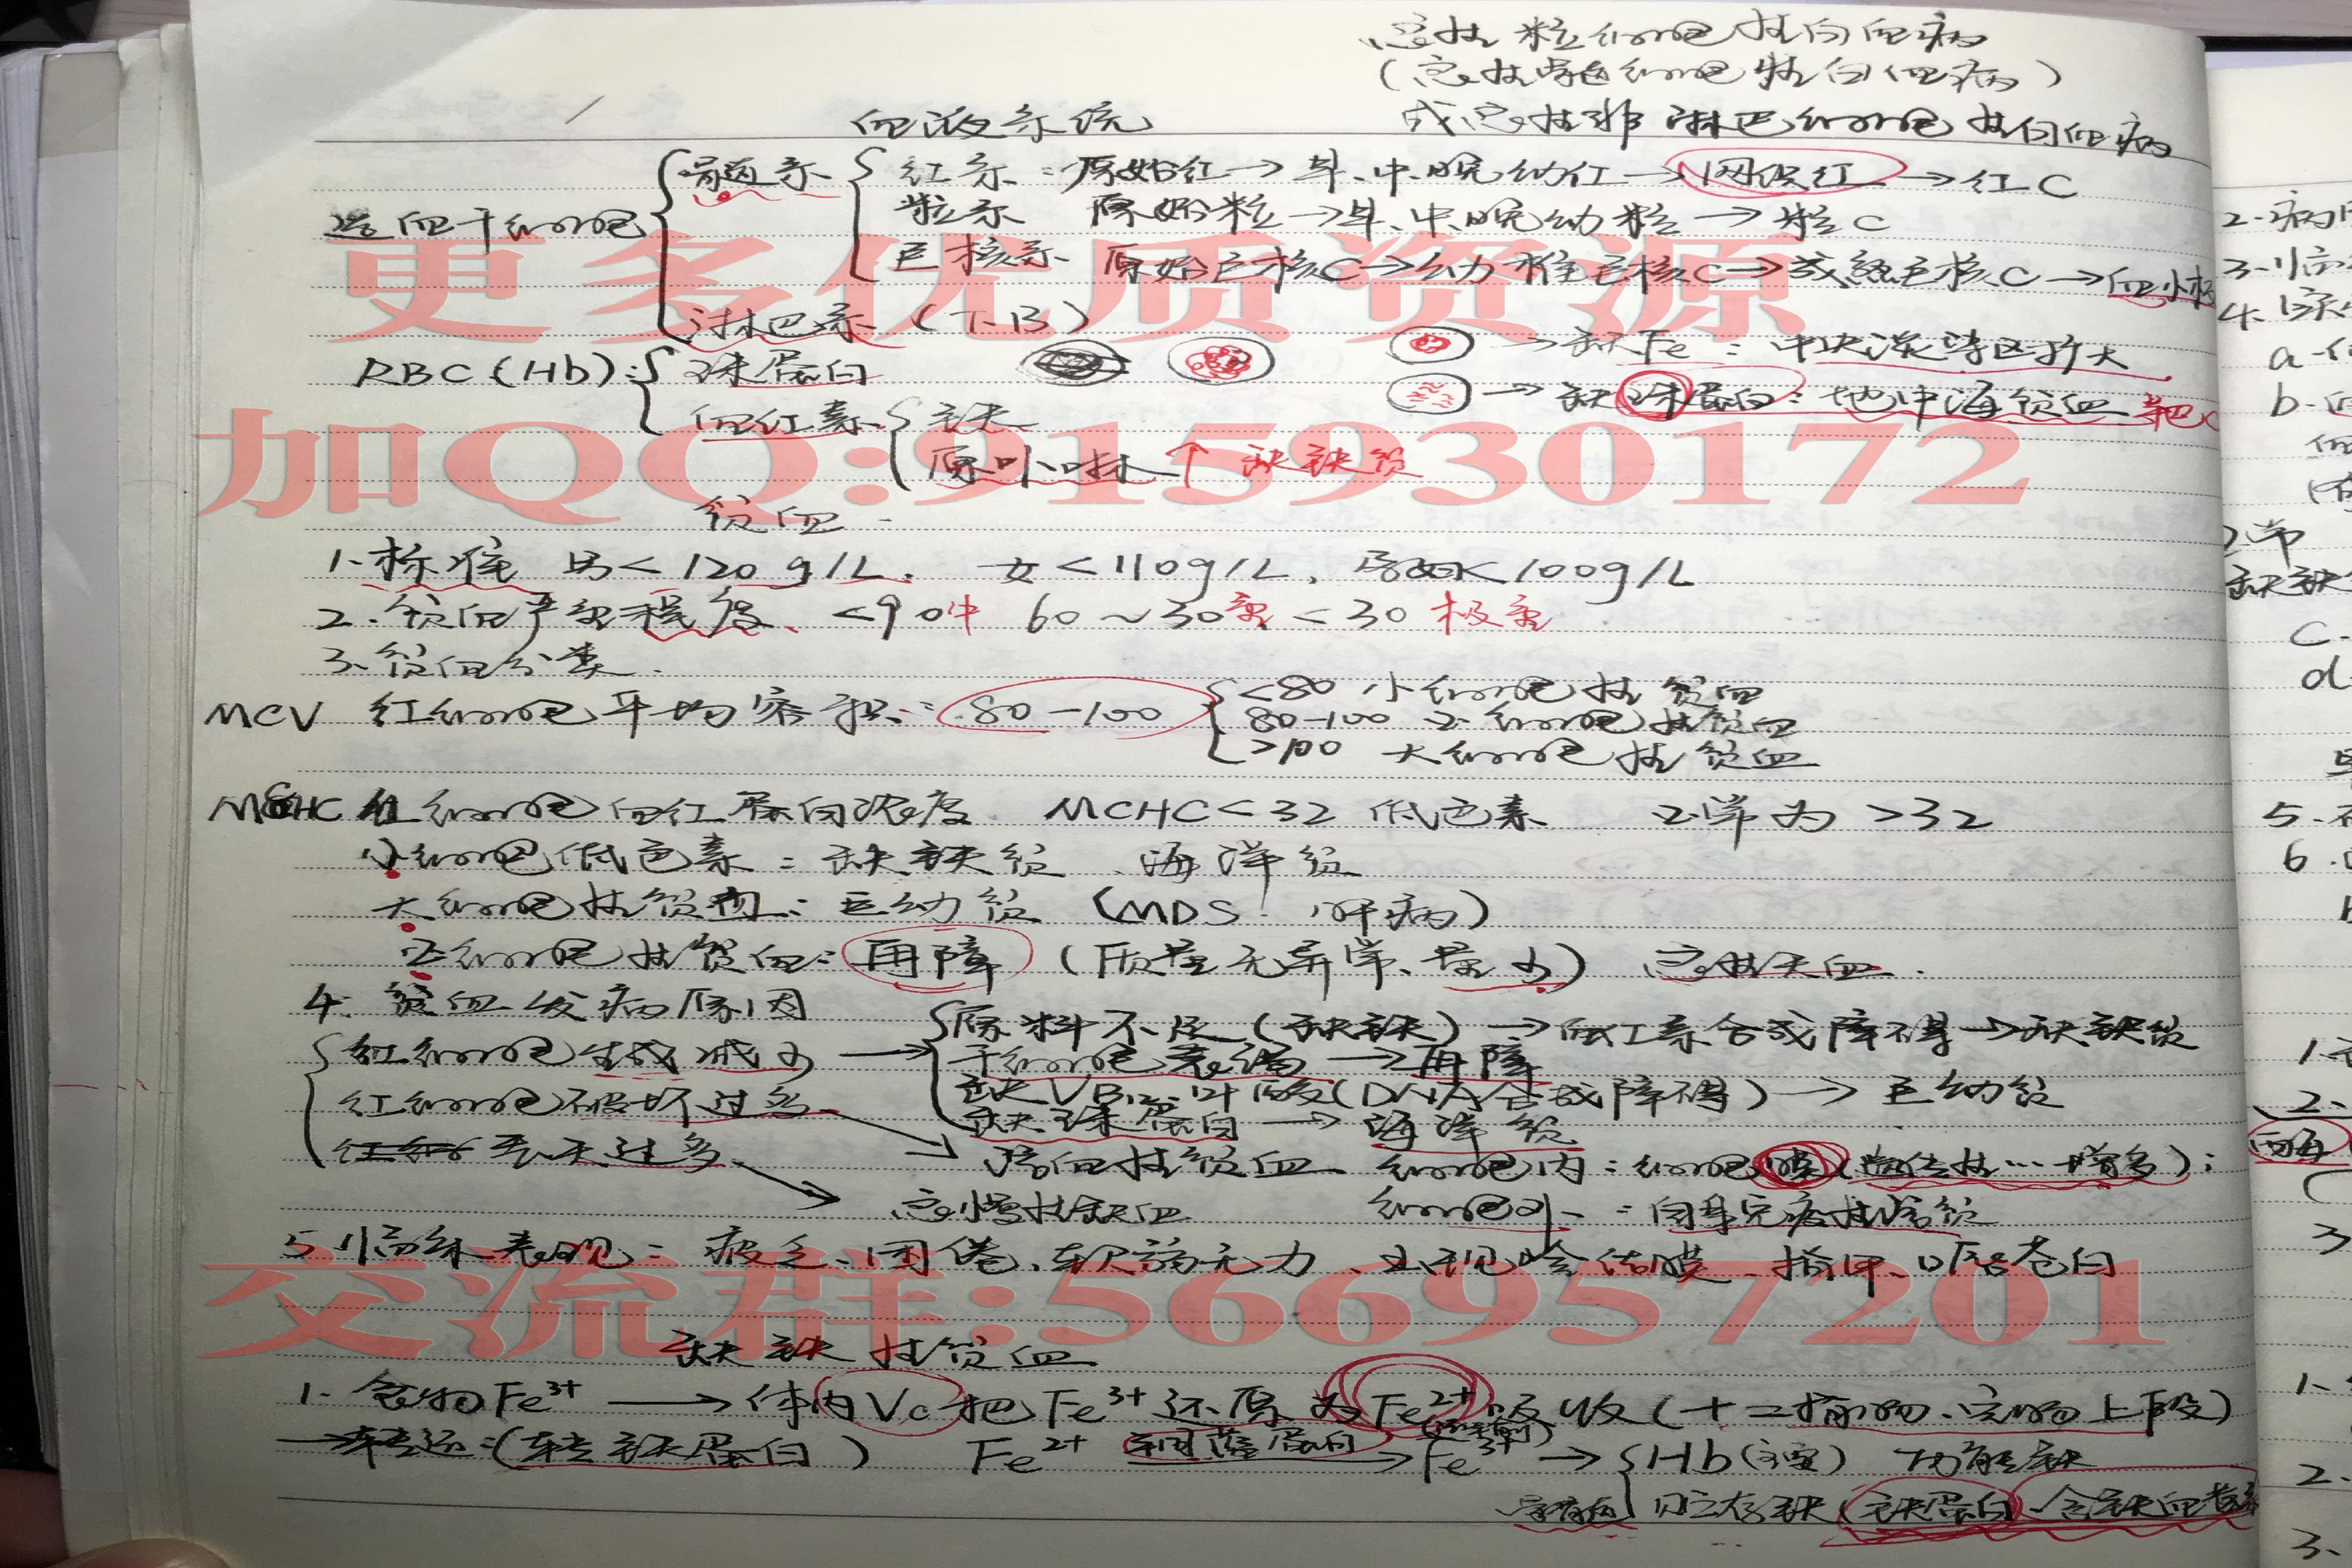 急性粒细胞性白血病
(急性髓细胞性白血病)
或急性非淋巴细胞性白血病
血液系统
造血干细胞
髓系
红系:原始红→早、中、晚幼红→网织红→红C
粒系 原始粒→早、中、晚幼粒→粒C
巨核系 原始巨核C→幼稚巨核C→成熟巨核C→血小板
淋巴系(T、B)
更多优质资源
RBC(Hb):
珠蛋白
→缺Fe:中央淡染区扩大
→缺珠蛋白:地中海贫血 靶C
血红素
铁
原卟啉↑ 缺铁贫
加QQ:915930172
贫血
1.标准 男<120g/L. 女<110g/L, 孕妇<100g/L
2.贫血严重程度、<90中 60~30重 <30极重
3.贫血分类.
MCV 红细胞平均容积:80-100
<80 小细胞性贫血
80-100 正细胞性贫血
>100 大细胞性贫血
MCHC 红细胞血红蛋白浓度 MCHC<32 低色素 正常为>32
小细胞低色素:缺铁贫、海洋贫
大细胞性贫血:巨幼贫(MDS、肝病)
正细胞性贫血:再障(质量无异常、量少) 急性失血.
4.贫血发病原因
红细胞生成减少→
原料不足(缺铁)→血红素合成障碍→缺铁贫
干细胞衰竭→再障
缺VB12、叶酸(DNA合成障碍)→巨幼贫
缺珠蛋白→海洋贫
红细胞破坏过多
溶血性贫血 细胞内:细胞膜(遗传性…增多);
细胞外:自身免疫性溶贫
丢失过多
急慢性失血
5.临床表现:疲乏、困倦、软弱无力、出现睑结膜、指甲、口唇苍白
交流群:566957201
缺铁性贫血
1.食物Fe³⁺→体内Vc把Fe³⁺还原为Fe²⁺吸收(十二指肠、空肠上段)
→转运:(转铁蛋白) Fe²⁺ 铜蓝蛋白→Fe³⁺→
Hb(主要) 功能铁
贮存铁(铁蛋白、含铁血黄素
2.病
3.临
4.
a.
b.
缺铁
c.
d
5.
6.
1.
2.
3
1.
2.
3.